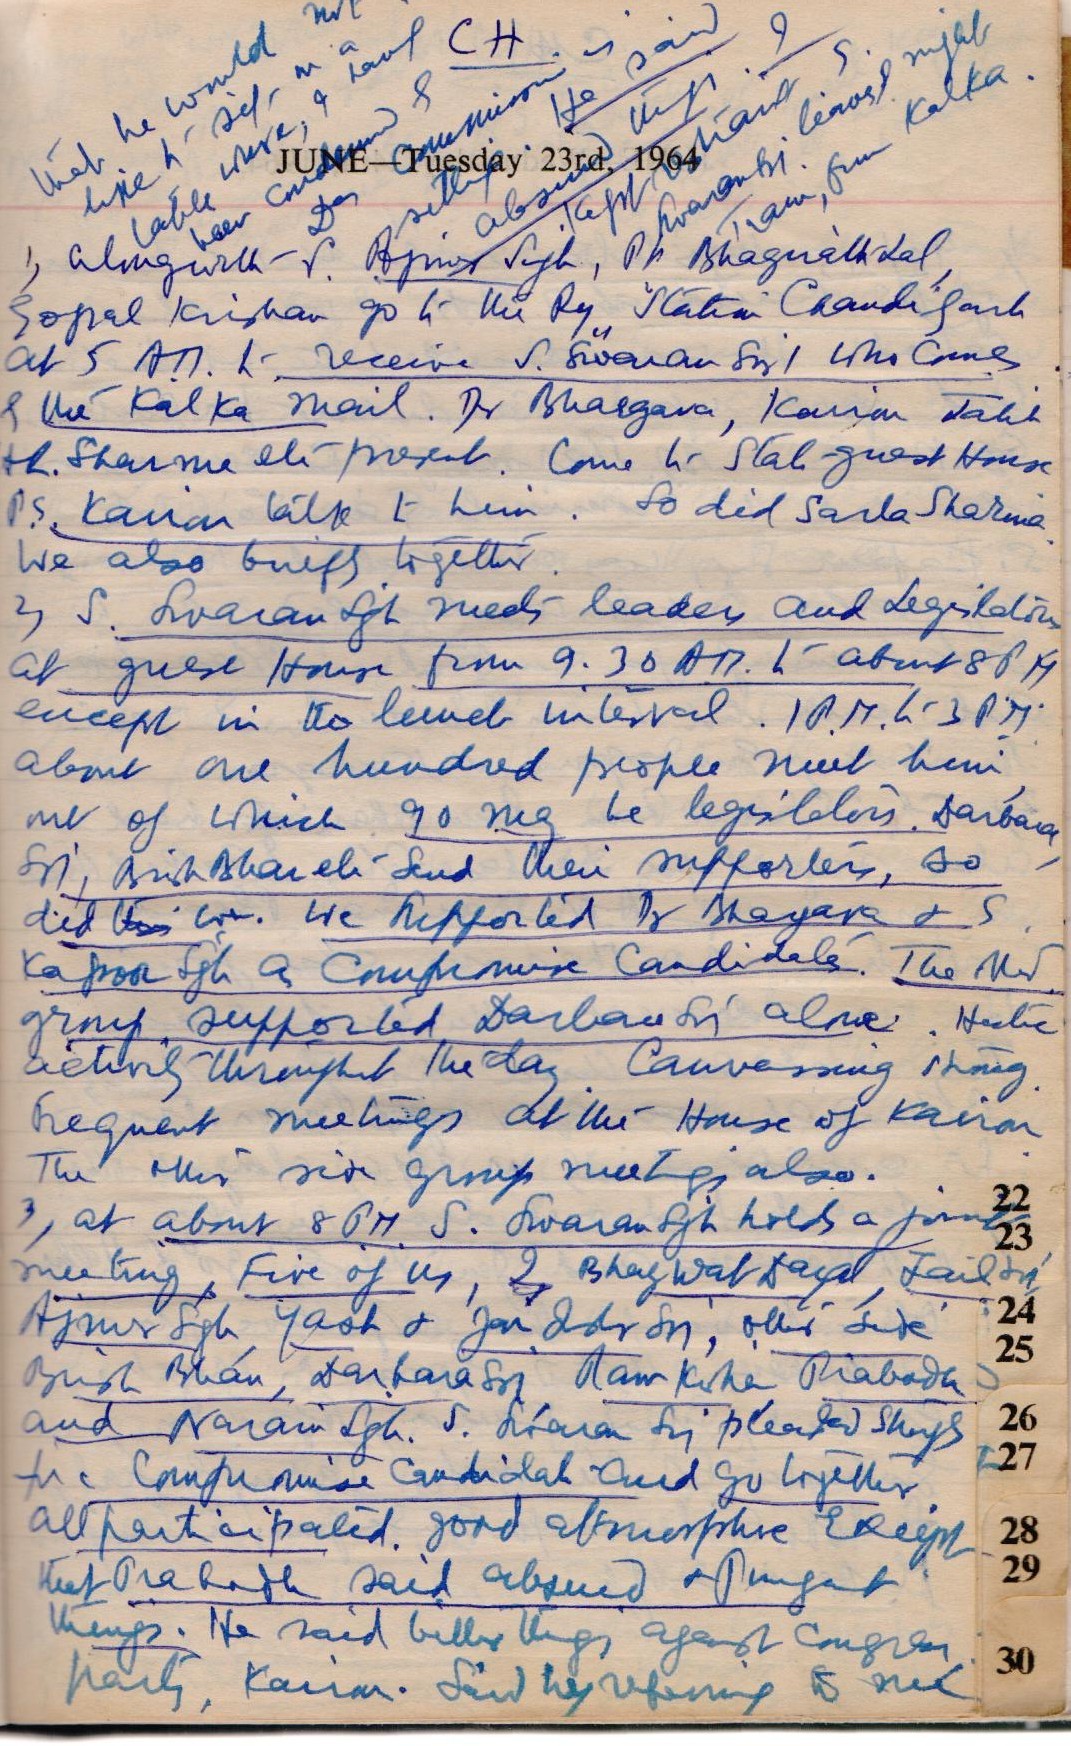 CH.
JUNE—Tuesday 23rd, 1964
that he would not
like to sit on a
table where, I have
been condemned &
Das Commission is
setting. He said
absurd things. I
kept silent. S.
Swaran Sj. leaves night
Train, from Kalka.
1, alongwith S. Ajmer Sgh, Ph Bhagirath Lal,
Gopal Krishan go to the Ry Station Chandigarh
at 5 A.M. to receive S. Swaran Sj who comes
by the Kalka mail. Dr Bhargava, Kairon
Sharma etc present. Come to State guest House
P.S. Kairon talk to him. So did Sarla Sharma.
We also briefly together.
2, S. Swaran Sgh meets leaders and Legislators
at guest House from 9.30 A.M. to about 8 PM
except in the lunch interval. 1 P.M. to 3 P.M.
about one hundred people meet him
out of which 90 may be legislators. Darbara
Sj, Brish Bhan etc send their supporters, so
did we. We supported Dr Bhargava & S.
Kapoor Sgh as Compromise Candidate. The
group supported Darbara Sj alone. Hectic
activity throughout the day. Canvassing strong.
Frequent meetings at the House of Kairon
The other side group meetings also.
3, at about 8 PM S. Swaran Sgh holds a joint
meeting, Five of us, I, Bhagwat Dayal, Zail Sj
Ajmer Sgh, Yash & Sj, other side
Brish Bhan, Darbara Sj Ram Kishan Prabodh
and Narain Sgh. S. Swaran Sj pleaded strongly
for Compromise Candidate and go together.
All participated. good atmosphere Except
that Prabodh said absurd & Pungent
things. He said bitter things against Congress
party, Kairon. Said by referring to me
22
23
24
25
26
27
28
29
30